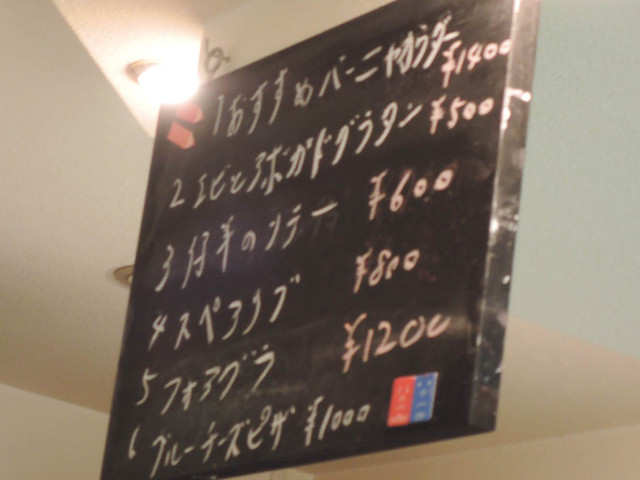 1 おすすめ バーニャカウダー ¥1400
2 エビとアボガドグラタン ¥500
3 仔羊のソテー ¥600
4 スペアリブ ¥800
5 フォアグラ ¥1200
6 ブルーチーズピザ ¥1000